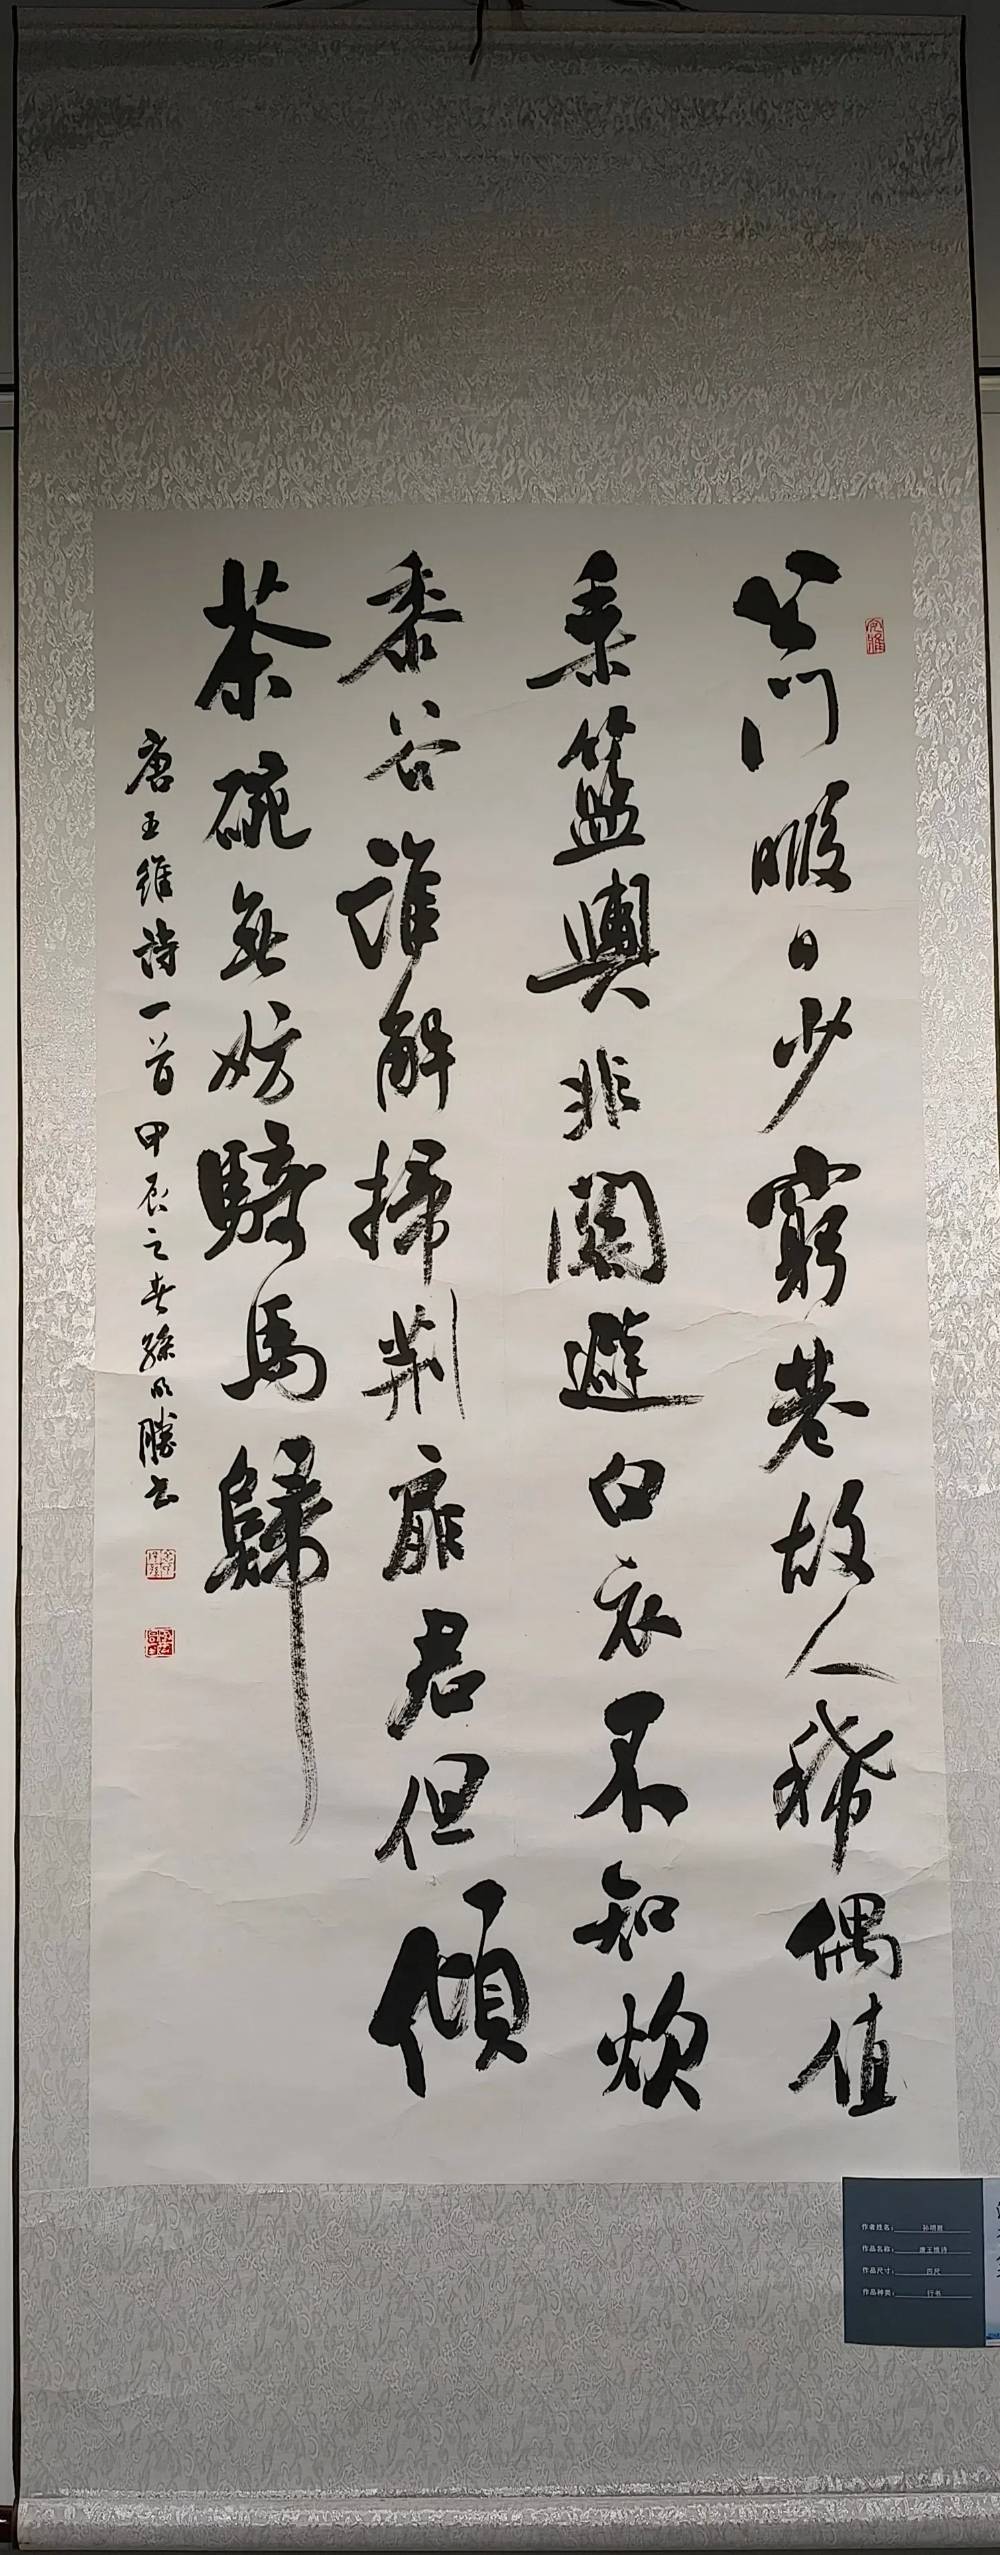 公門暇日少窮巷故人稀偶值
乘籃輿非關避白衣不知炊
黍谷誰解掃荆扉君但傾
茶碗無妨騎馬歸
唐王維詩一首甲辰之春孫明勝書
作者姓名：孙明胜
作品名称：唐王维诗
作品尺寸：四尺
作品种类：行书